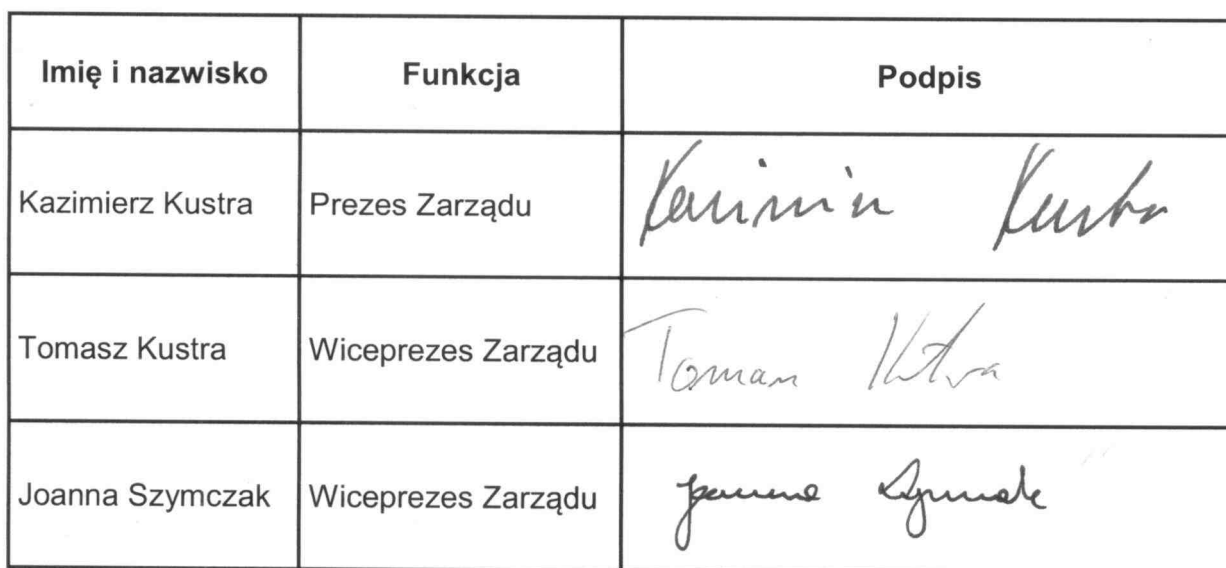 Imię i nazwisko Funkcja Podpis
Kazimierz Kustra Prezes Zarządu Kazimierz Kustra
Tomasz Kustra Wiceprezes Zarządu Tomasz Kustra
Joanna Szymczak Wiceprezes Zarządu Joanna Szymczak